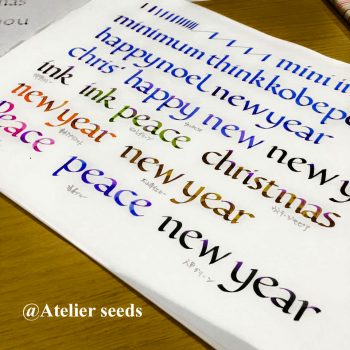 mas
you
mini i
minimum thinkkobepe
happynoel new year
chris' happy new
ink ink peace new y
new year christmas
new year
Peace peace new year
@Atelier seeds